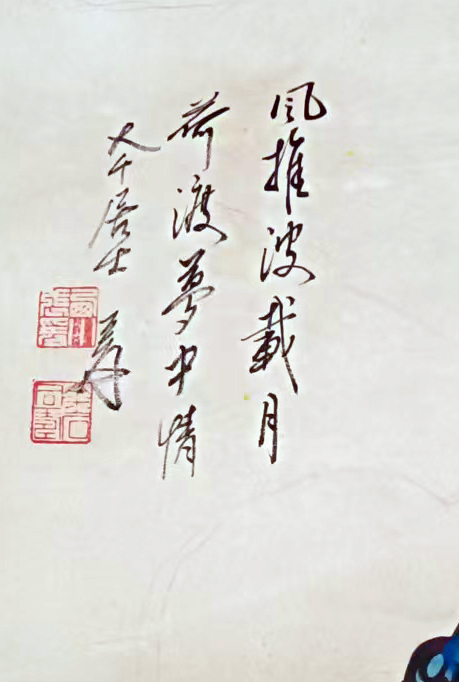 風推波載月
荷渡夢中情
大千居士 爰